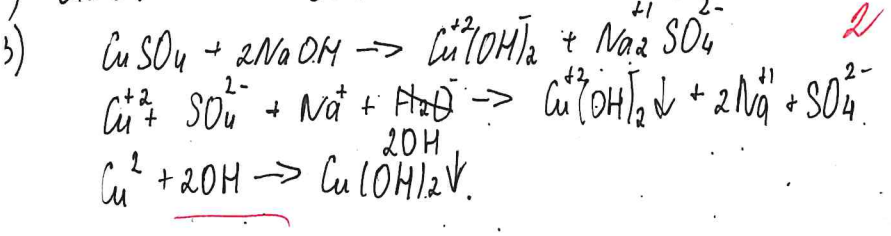 3) CuSO₄ + 2NaOH → Cu⁺²(OH)⁻₂ + Na⁺¹₂SO₄²⁻ 2
Cu⁺² + SO₄²⁻ + Na⁺ + 2OH⁻ → Cu⁺²(OH)⁻₂↓ + 2Na⁺¹ + SO₄²⁻.
Cu² + 2OH → Cu(OH)₂↓.